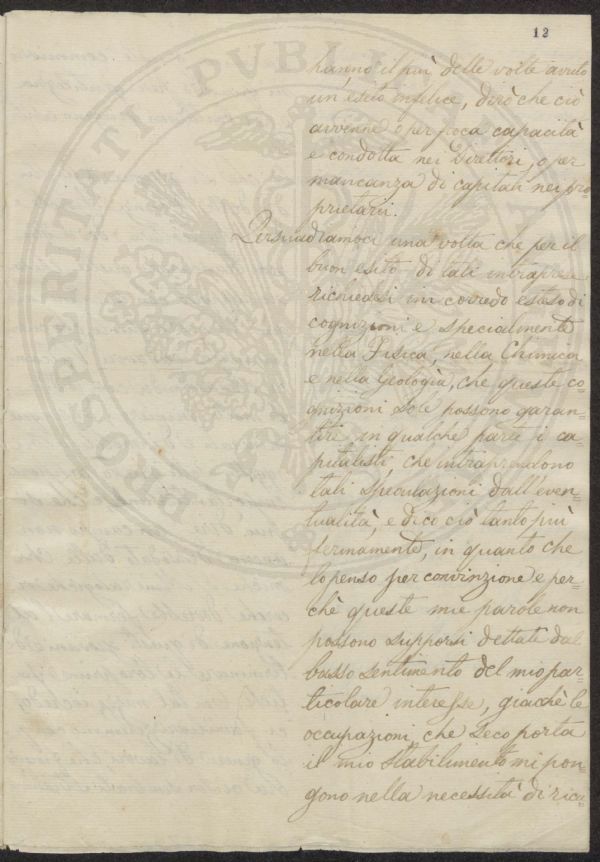 12
hanno il più delle volte avuto
un'esito infelice, dirò che ciò
avvenne o per poca capacità
e condotta nei Direttori, o per
mancanza di capitali nei pro=
prietarii.
Persuadiamoci una volta che per il
buon esito di tali intraprese
richiedesi un corredo esteso di
cognizioni e specialmente
nella Fisica, nella Chimica
e nella Geologia, che queste co=
gnizioni sole possono garan=
tire in qualche parte i ca=
pitalisti, che intraprendono
tali speculazioni dall'even=
tualità, e dico ciò tanto più
fermamente, in quanto che
lo penso per convinzione e per=
chè queste mie parole non
possono supporsi dettate dal
basso sentimento del mio par=
ticolare interesse, giacchè le
occupazioni, che seco porta
il mio stabilimento mi pon=
gono nella necessità di ricu=
PROSPERITATI PVBLICAE